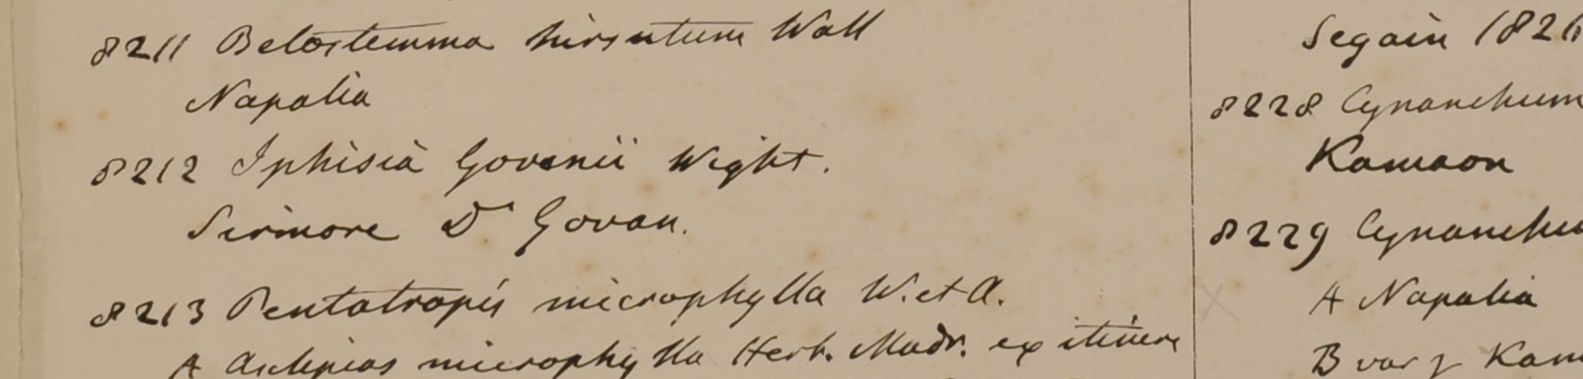 8211 Belostemma hirsutum Wall
Napalia
8212 Iphisia Govanii Wight.
Sirmore Dr Govan.
8213 Pentatropis microphylla W. et A.
A Asclepias microphylla Herb. Madr. ex itinere
Segain 1826
8228 Cynanchum
Kamaon
8229 Cynanchu
A Napalia
B var γ Kam